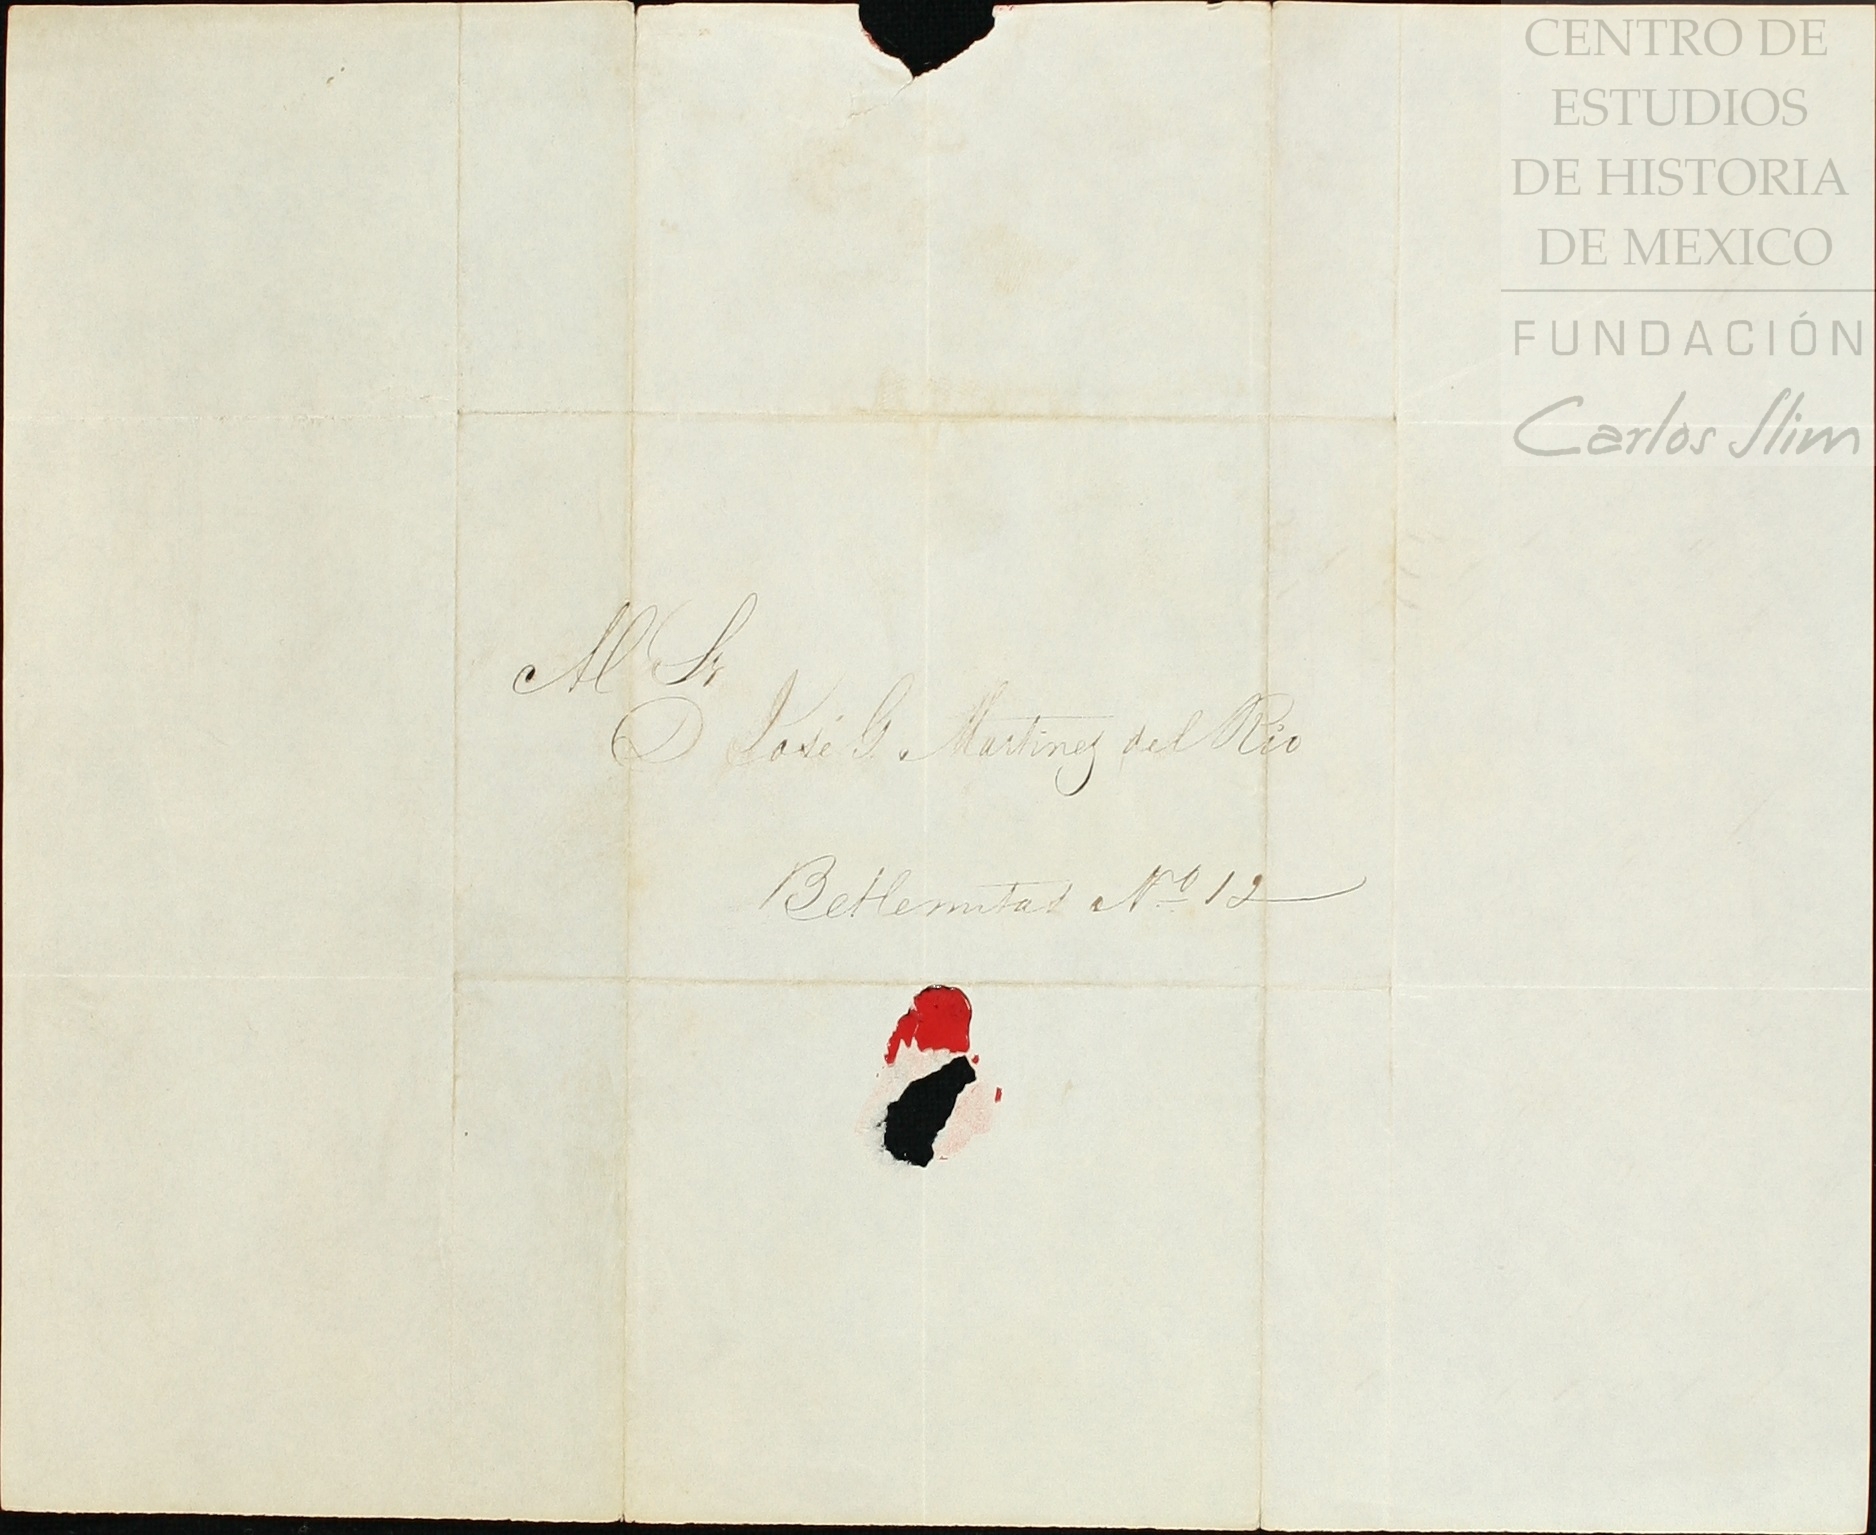 Al Sr
D José G. Martinez del Rio
Betlemitas Nº 12
CENTRO DE
ESTUDIOS
DE HISTORIA
DE MEXICO
FUNDACIÓN
Carlos Slim